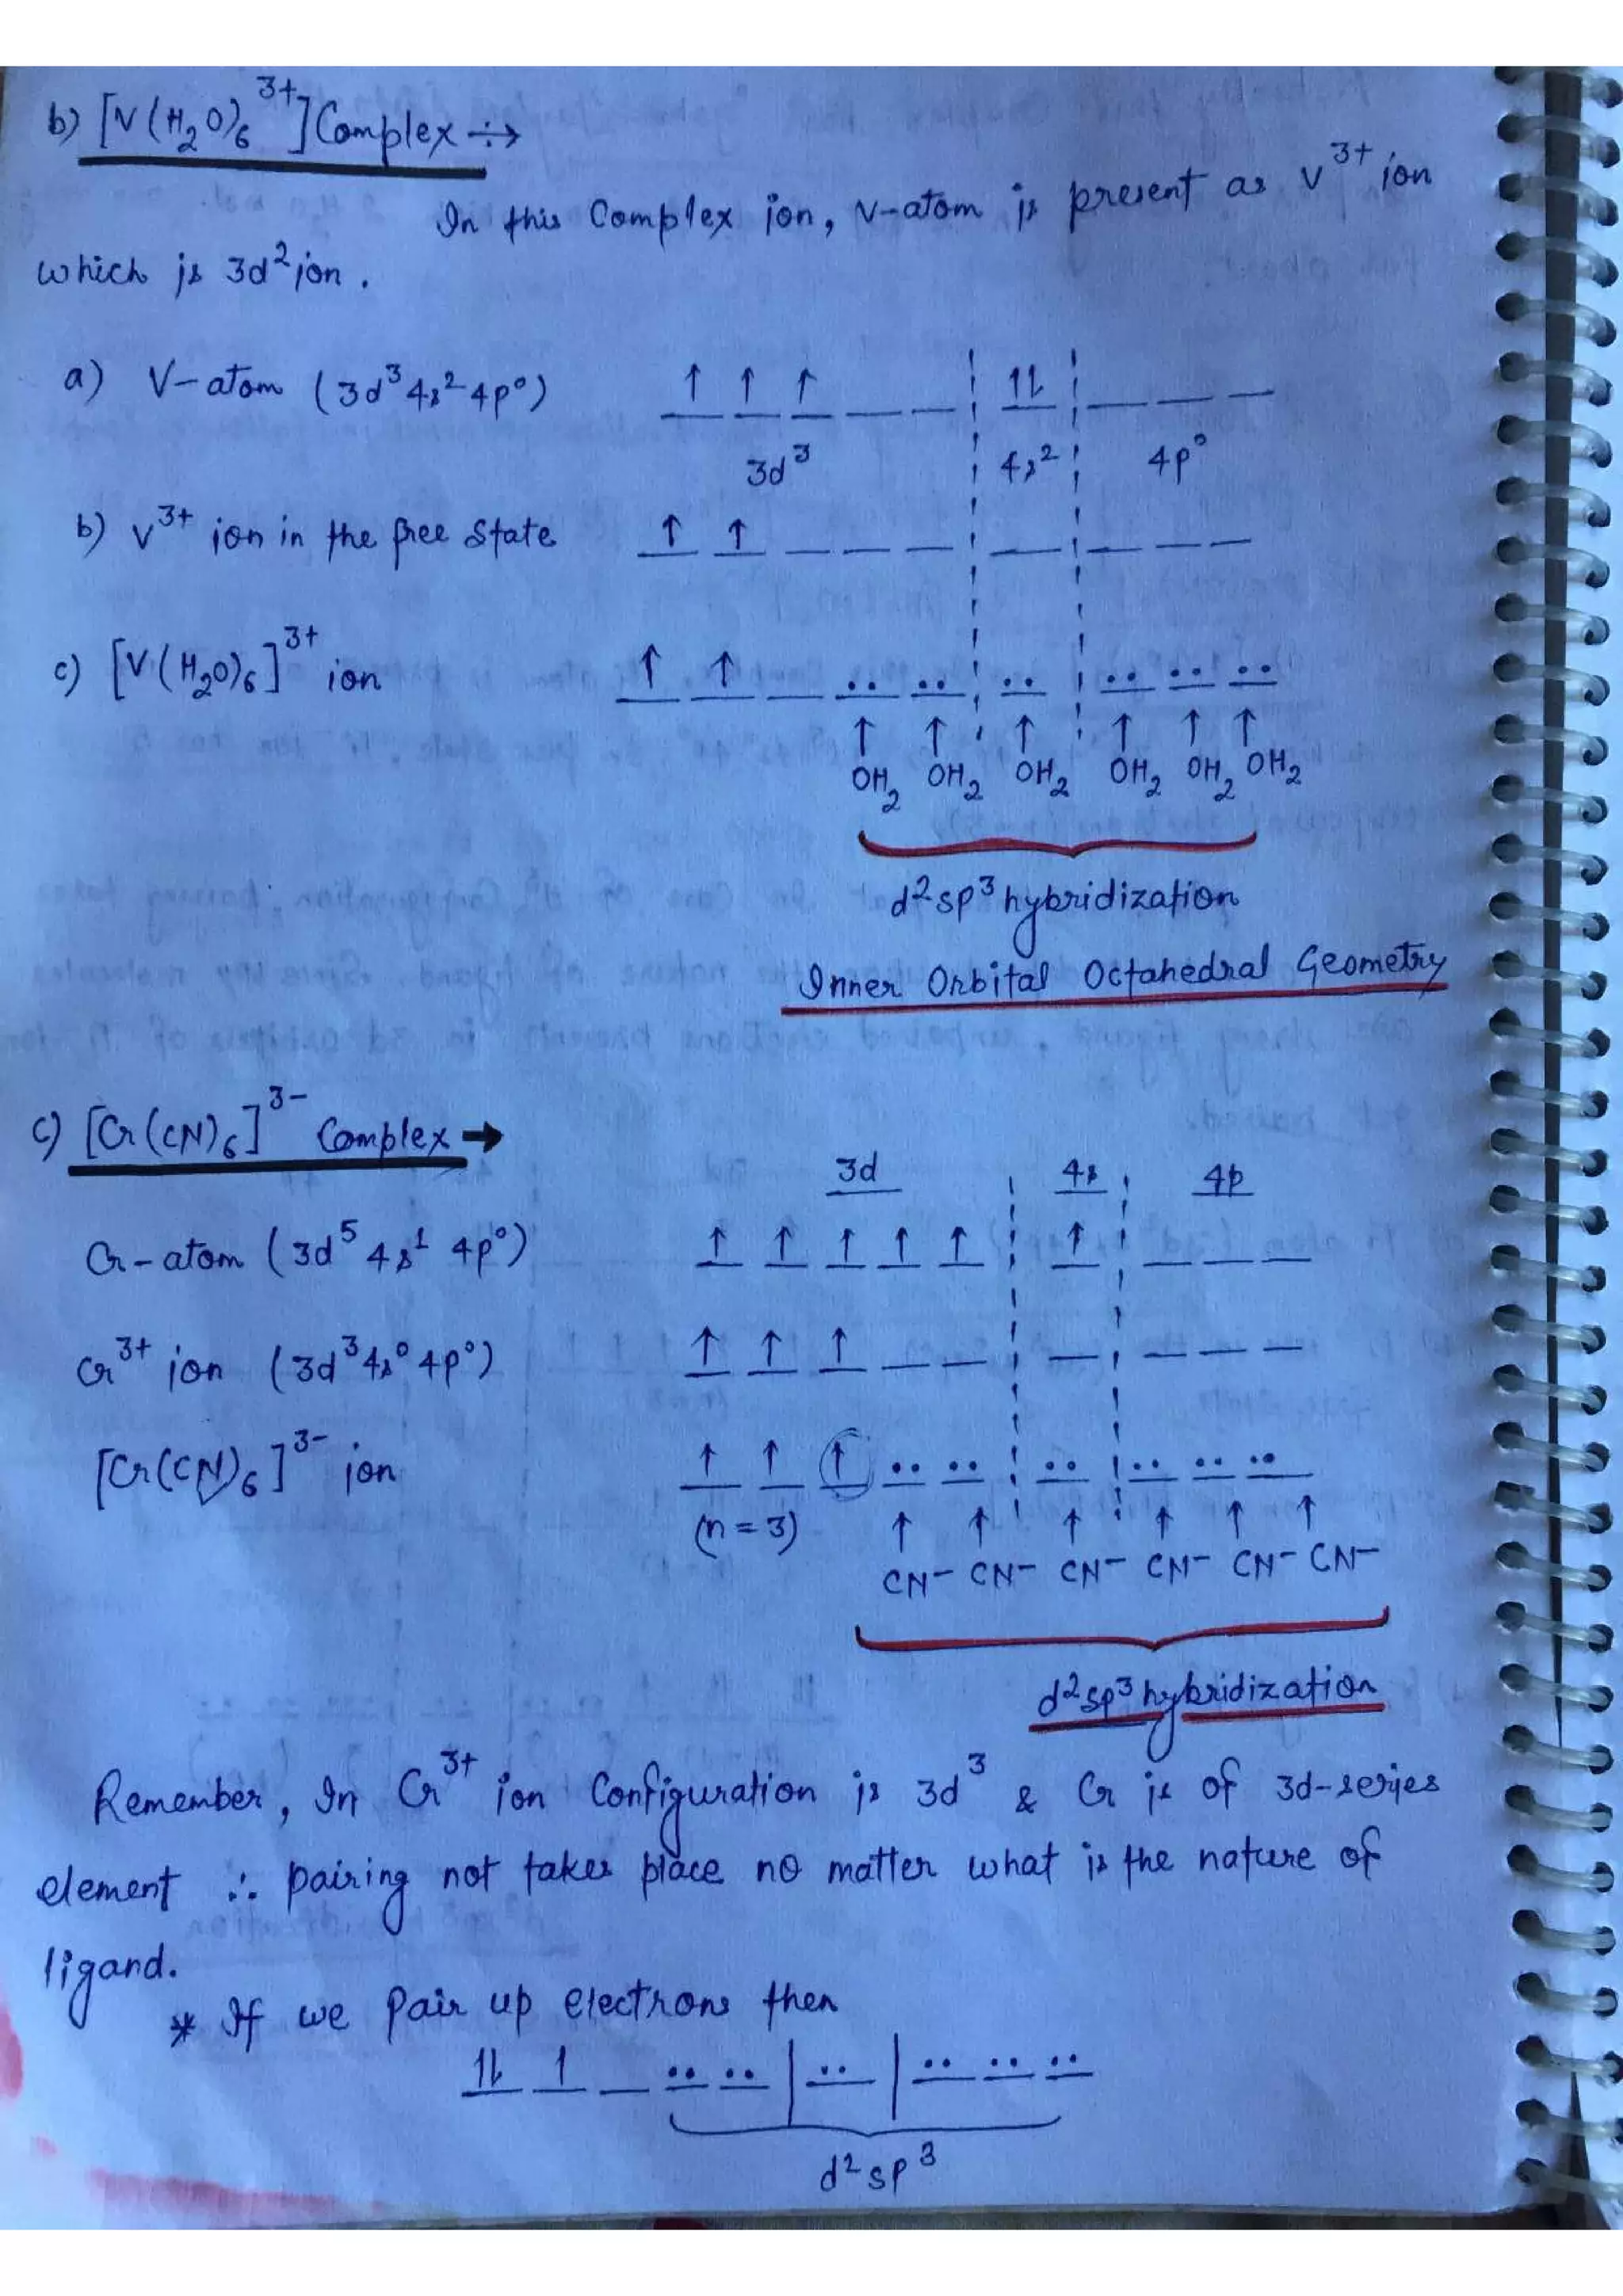 b) [V(H₂O)₆³⁺] Complex ÷→
In this Complex ion, V-atom is present as V³⁺ ion
which is 3d² ion.
a) V-atom (3d³4s²4p⁰) ↑ ↑ ↑ _ _ ¦ ↑↓ ¦ _ _ _
3d³ 4s² 4p⁰
b) V³⁺ ion in the free state ↑ ↑ _ _ _ ¦ _ ¦ _ _ _
c) [V(H₂O)₆]³⁺ ion ↑ ↑ _ .. .. ¦ .. ¦ .. .. ..
↑ ↑ ↑ ↑ ↑ ↑
OH₂ OH₂ OH₂ OH₂ OH₂ OH₂
d²sp³ hybridization
Inner Orbital Octahedral Geometry
c) [Cr(CN)₆]³⁻ Complex →
3d 4s 4p
Cr-atom (3d⁵ 4s¹ 4p⁰) ↑ ↑ ↑ ↑ ↑ ¦ ↑ ¦ _ _ _
Cr³⁺ ion (3d³4s⁰4p⁰) ↑ ↑ ↑ _ _ ¦ _ ¦ _ _ _
[Cr(CN)₆]³⁻ ion ↑ ↑ ↑ .. .. ¦ .. ¦ .. .. ..
(n = 3) ↑ ↑ ↑ ↑ ↑ ↑
CN⁻ CN⁻ CN⁻ CN⁻ CN⁻ CN⁻
d²sp³ hybridization
Remember, In Cr³⁺ ion Configuration is 3d³ & Cr is of 3d-series
element ∴ pairing not takes place no matter what is the nature of
ligand.
* If we Pair up electrons then
↑↓ ↑ _ .. .. | .. | .. .. ..
d²sp³